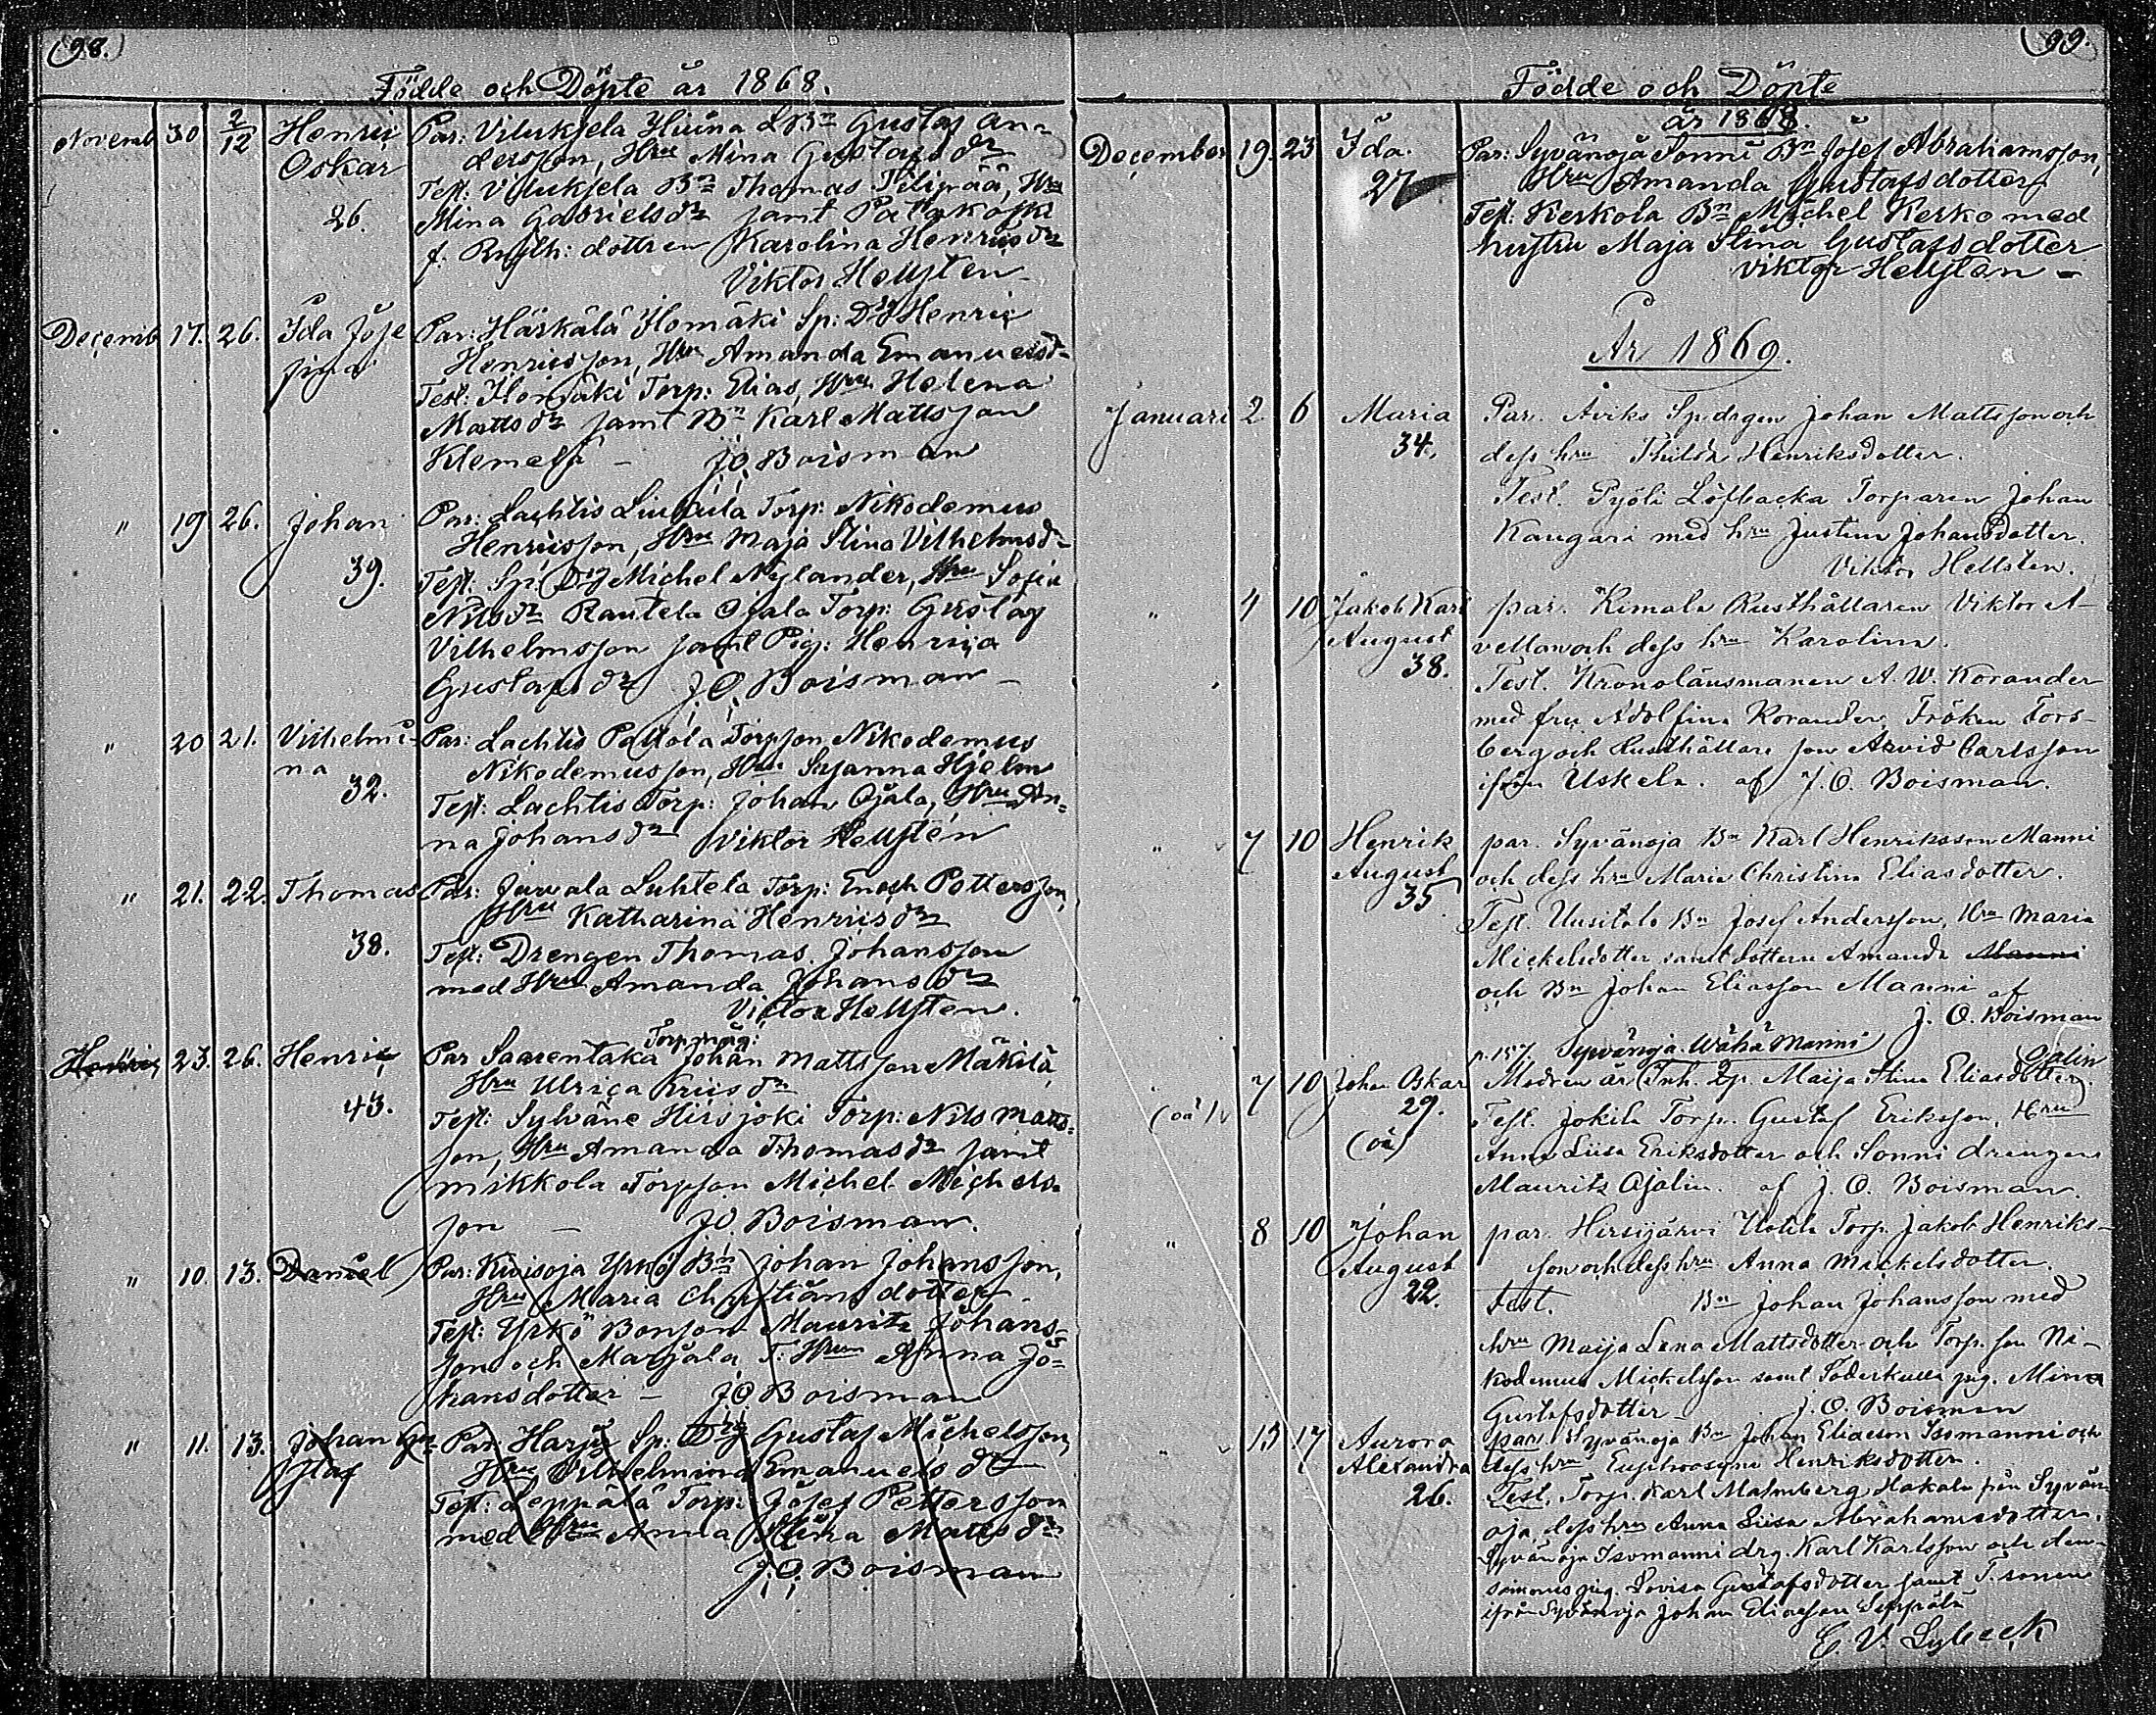 98.
Födde och Döpte år 1868.
Novemb 30 2/12 Henric Par: Vilukjela Hiina LBn Gustaf An=
Oskar dersson, Hru Mina Gustafs dr
Test: Vilukjela Bn Thomas Filipää, Hru
26. Mina Gabriels dr samt Patakoski
f. Rusth: dottren Karolina Henrics dr
Viktor Hellsten
Decemb 17. 26. Ida Jose Par: Härkälä Ilomäki Sp: Dg Henric
fina Henricsson, Hru Amanda Emanuelsd=
Test: Ilomäki Torp: Elias, Hru Helena
Matts dr samt Bn Karl Mattsson
Klemelä – J.O. Boisman
" 19 26. Johan Par: Lachtis Torp: Nikodemus
Henricsson, Hru Maja Stina Vilhelmsd=
39. Test. Sp: Dg Michel Nylander, Hru Sofia
Nils dr Rautela Ojala Torp: Gustaf
Vilhelmsson samt Pig: Henrica
Gustafs dr J.O. Boisman –
" 20 21. Vilhelmi- Par: Lachtis Torpson Nikodemus
na Nikodemusson, Hru Susanna Hjelm
32. Test: Lachtis Torp: Johan Ojala, Hru An=
na Johans dr Viktor Hellsten
" 21. 22. Thomas Par: Juvala Luhtela Torp: Enoch Pettersson,
Hru Katharina Henrics dr
38. Test: Drengen Thomas Johansson
med Hru Amanda Johans dr
Victor Hellsten.
Torpmåg:
Henric 23. 26. Henric Par Saarentaka Johan Mattsson Mäkilä
Hru Ulrica dr
43. Test: Sylväne Hirsjoki Torp: Nils Matts=
son, Hru Amanda Thomas dr samt
Mikkola Torpson Michel Michels=
son – J.O. Boisman.
" 10. 13. Daniel Par: Kivisoja Yrkö Bn Johan Johansson,
Hru Maria Christians dotter
Test: Yrkö Bonson Mauritz Johans=
son och Marjala T: Hru Anna Jo=
hansdotter – J.O Boisman
" 11. 13. Johan Gu= Par: Harju Sp: Dg Gustaf Michelsson,
staf Hru Vilhelmina Emanuels dr
Test: Leppälä Torp: Josef Pettersson
med Hru Anna Stina Matts dr
J.O. Boisman
99.
Födde och Döpte
år 1868.
December 19. 23 Ida. Par: Syvänoja Sonni Bn Josef Abrahamsson,
27 Hru Amanda Gustafsdotter
Test: Kerkola Bn Michel Kerko med
hustru Maja Stina Gustafsdotter
Viktor Hellsten –
År 1869.
Januari 2 6 Maria Par. Aviks Sp.drgen Johan Mattsson och
34. dess hru Thilda Henriksdotter.
Test. Pyöli Löfbacka Torparen Johan
Kangari med hru Justina Johansdotter.
Viktor Hellsten.
" 4 10 Jakob Karl par. Kimala Rusthållaren Viktor A-
August vellan och dess hru Karolina.
38. Test. Kronolänsmanen A. W. Korander
med fru Adolfina Korander, Fröken Fors-
berg och Rusthållare son Arvid Carlsson
ifrån Uskela. af J. O. Boisman.
" 7 10 Henrik par. Syvänoja Bn Karl Henriksson Manni
August och dess hru Maria Christina Eliasdotter.
35 Test. Uusitalo Bn Josef Andersson, Hru Maria
Mickelsdotter samt dottern Amanda Manni
och Bn Johan Eliasson Manni af
J. O. Boisman
p. 157. Syvänoja Wähä Manni
" 7 10 Johan Oskar Modren är Inh. Maija Stina Eliasdotter Ojalin
(oä) 29. Test. Jokila Torp. Gustaf Eriksson, Hru
(oä) Anna Liisa Eriksdotter och Sonni drengen
Mauritz Ojalin. af J. O. Boisman.
" 8 10 Johan par. Hirsijärvi Torp. Jakob Henriks-
August son och dess hru Anna Mickelsdotter.
22. Test. Bn Johan Johansson med
hru Maija Lena Mattsdotter och Torp. son Ni-
kodemus Mickelsson samt Söderkulla pig. Mina
Gustafsdotter – J. O. Boisman
" 15 17 Aurora par. Syvänoja Bn Johan Eliasson Isomanni och
Alexandra dess hru Euphrosyne Henriksdotter.
26. Test. Torp. Karl Malmberg Hakala från Syvän
oja, dess hru Anna Liisa Abrahamsdotter.
Syvänoja Isomanni drg. Karl Karlsson och den-
sammes pig. Lovisa Gustafsdotter samt T. sonen
ifrån Syvänoja Johan Eliasson Seppälä
E. V. Lybeck